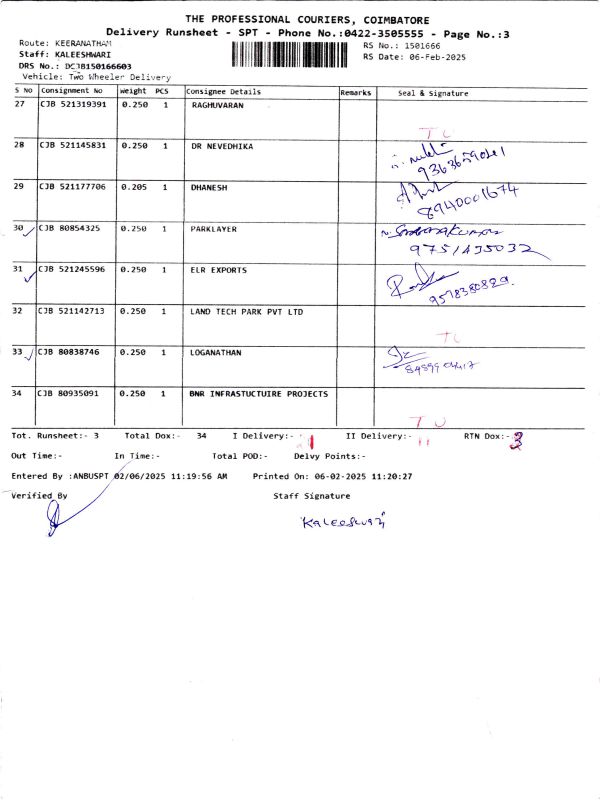 THE PROFESSIONAL COURIERS, COIMBATORE
Delivery Runsheet - SPT - Phone No.:0422-3505555 - Page No.:3
Route: KEERANATHAM
RS No.: 1501666
Staff: KALEESHWARI
RS Date: 06-Feb-2025
DRS No.: DCJB150166603
Vehicle: Two Wheeler Delivery
S No Consignment No Weight PCS Consignee Details Remarks Seal & Signature
27 CJB 521319391 0.250 1 RAGHUVARAN
28 CJB 521145831 0.250 1 DR NEVEDHIKA
29 CJB 521177706 0.205 1 DHANESH
8940001674
30 CJB 80854325 0.250 1 PARKLAYER
9751435032
31 CJB 521245596 0.250 1 ELR EXPORTS
32 CJB 521142713 0.250 1 LAND TECH PARK PVT LTD
33 CJB 80838746 0.250 1 LOGANATHAN
34 CJB 80935091 0.250 1 BNR INFRASTUCTUIRE PROJECTS
Tot. Runsheet:- 3 Total Dox:- 34 I Delivery:- II Delivery:- 11 RTN Dox:- 3
Out Time:- In Time:- Total POD:- Delvy Points:-
Entered By :ANBUSPT 02/06/2025 11:19:56 AM Printed On: 06-02-2025 11:20:27
Verified By Staff Signature
Kaleeswari